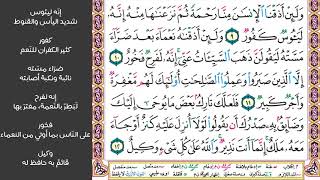 وَلَئِنْ أَذَقْنَا ٱلْإِنسَٰنَ مِنَّا رَحْمَةً ثُمَّ نَزَعْنَٰهَا مِنْهُ إِنَّهُۥ
لَيَـُٔوسٌ كَفُورٌ ٩ وَلَئِنْ أَذَقْنَٰهُ نَعْمَآءَ بَعْدَ ضَرَّآءَ
مَسَّتْهُ لَيَقُولَنَّ ذَهَبَ ٱلسَّيِّـَٔاتُ عَنِّىٓ إِنَّهُۥ لَفَرِحٌ فَخُورٌ
١٠ إِلَّا ٱلَّذِينَ صَبَرُوا۟ وَعَمِلُوا۟ ٱلصَّٰلِحَٰتِ أُو۟لَٰٓئِكَ لَهُم مَّغْفِرَةٌ
وَأَجْرٌ كَبِيرٌ ١١ فَلَعَلَّكَ تَارِكٌۢ بَعْضَ مَا يُوحَىٰٓ إِلَيْكَ
وَضَآئِقٌۢ بِهِۦ صَدْرُكَ أَن يَقُولُوا۟ لَوْلَآ أُنزِلَ عَلَيْهِ كَنزٌ أَوْ جَآءَ
مَعَهُۥ مَلَكٌ إِنَّمَآ أَنتَ نَذِيرٌ وَٱللَّهُ عَلَىٰ كُلِّ شَىْءٍ وَكِيلٌ ١٢
إنه ليئوس
شديد اليأس والقنوط
كفور
كثير الكفران للنعم
ضراء مسته
نائبة ونكبة أصابته
إنه لفرح
لبطر بالنعمة، مغتر بها
فخور
على الناس بما أوتي من النعماء
وكيل
قائم به حافظ له